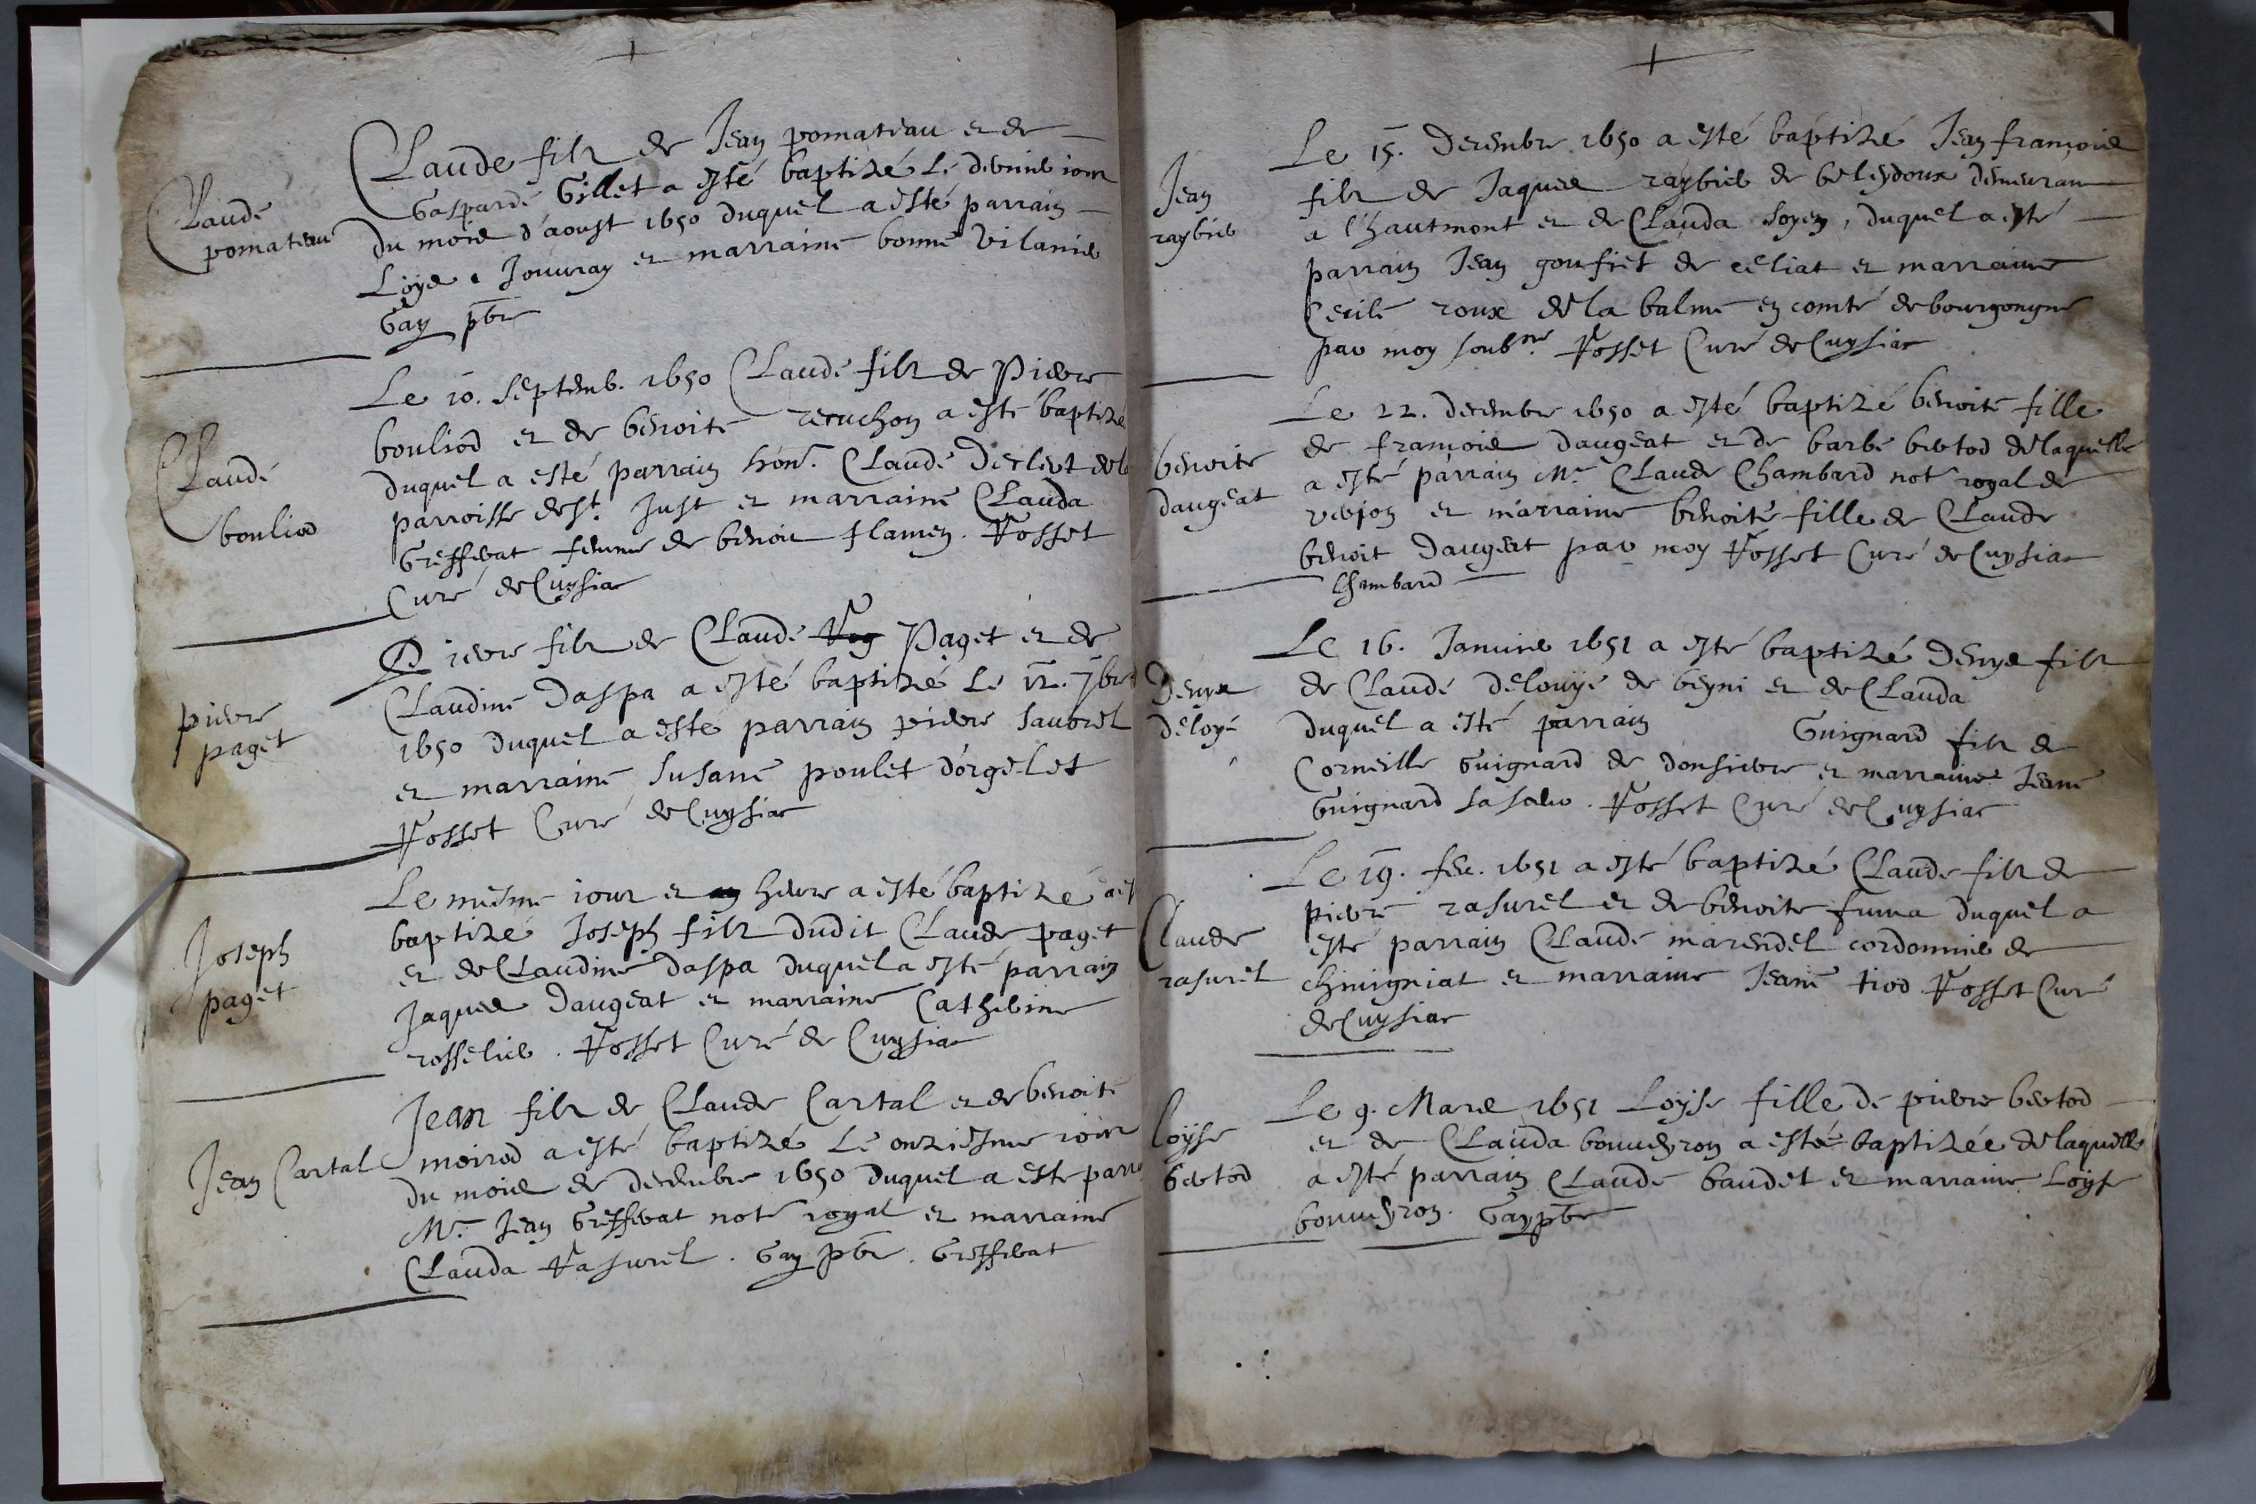 Claude
pomateau
Claude filz de Jean pomateau et de
Gasparde Gillet a esté baptizé le dernier iour
du mois d'aoust 1650 duquel a esté parrain
Loys Jouvray et marraine bonne Vilanie
Gay pbre
Claude
bouliod
Le 10. Septemb. 1650 Claude filz de Pierre
bouliod et de benoite recuchon a esté baptizé
duquel a esté parrain hon. Claude de la
parroisse de st. Just et marraine Clauda
Greffierat femme de benoit flamen. Fosset
Curé de Cuysiac
pierre
paget
Pierre filz de Claude Paget et de
Claudine daspa a esté baptizé le 12. 7bre
1650 duquel a esté parrain pierre sauorel
et marraine susane poulet d'orgelet
Fosset Curé de Cuysiac
Joseph
paget
Le mesme iour et heure a esté baptizé
baptizé Joseph filz dudit Claude paget
et de Claudine daspa duquel a esté parrain
Jaques daugeat et marraine Catherine
rosselier. Fosset Curé de Cuysiac
Jean Cartal
Jean filz de Claude Cartal et de benoite
moirod a esté baptizé le onziesme iour
du mois de decembre 1650 duquel a este parr
Mr. Jean Greffierat note royal et marraine
Clauda Rasurel. Gay pbre. Greffierat
Jean
raybier
Le 15. Decembre 1650 a esté baptizé Jean françois
filz de Jaques raybier de beleydoux demeuran
a l'hautmont et de Clauda soyen, duquel a esté
parrain Jean goufiet de celiat et marraine
Cecile roux de la balme en comté de bourgongne
par moy soubne. Fosset Curé de Cuysiac
benoite
daugeat
Le 22. decembre 1650 a esté baptizé benoite fille
de françois daugeat et de barbe bertod de laquelle
a esté parrain Mr. Claude Chambard note royal de
verjon et marraine benoite fille de Claude
benoit daugeat par moy Fosset Curé de Cuysiac
Chambard
Denys
deloyé
Le 16. Janvier 1651 a esté baptizé denys filz
de Claude delouye de beyni et de Clauda
duquel a esté parrain Guignard filz de
Corneille Guignard de donsierre et marraine Jeane
Guignard sa seur. Fosset Curé de Cuysiac
Claude
rasurel
Le 19. fev. 1651 a esté baptizé Claude filz de
pierre rasurel et de benoite fuma duquel a
esté parrain Claude marendel cordonnier de
chivigniat et marraine Jeane tiod Fosset Curé
de Cuysiac
Loyse
bertod
Le 9. Mars 1651 Loyse fille de pierre bertod
et de Clauda bouveyron a esté baptizée de laquelle
a esté parrain Claude baudet et marraine Loyse
bouveyron. Gay pbre